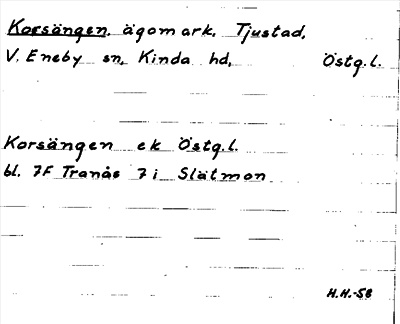 Korsängen. ägomark. Tjustad,
V. Eneby sn, Kinda hd, Östg.l.
Korsängen ek Östg.l.
bl. 7F Tranås 7 i Slätmon
H.H.-58